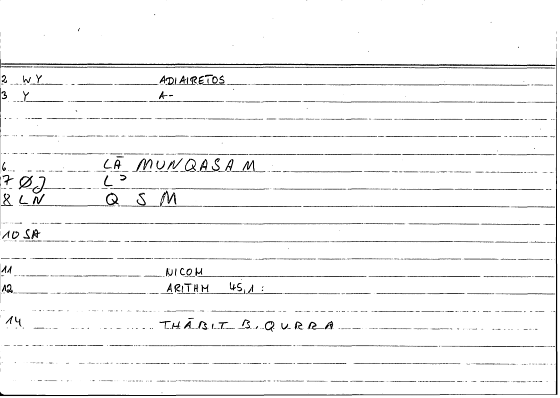 2 WY ADIAIRETOS
3 Y A-
6 LĀ MUNQASAM
7 ØJ Lʾ
8 LN Q S M
10 SA
11 NICOM
12 ARITHM 45,1 :
14 THĀBIT B. QURRA